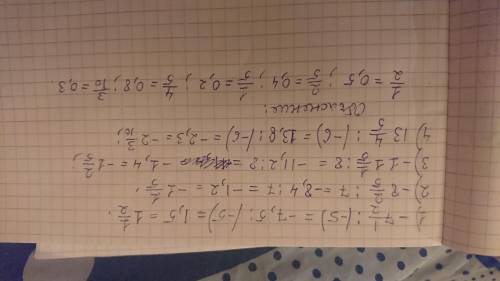 1) -7 1/2 : (-5) = -7,5 : (-5) = 1,5 = 1 1/2
2) -8 2/5 : 7 = -8,4 : 7 = -1,2 = -1 1/5
3) -11 1/5 : 8 = -11,2 : 8 = -1,4 = -1 2/5
4) 13 4/5 : (-6) = 13,8 : (-6) = -2,3 = -2 3/10
Объяснение:
1/2 = 0,5 ; 2/5 = 0,4 ; 1/5 = 0,2 ; 4/5 = 0,8 ; 3/10 = 0,3.